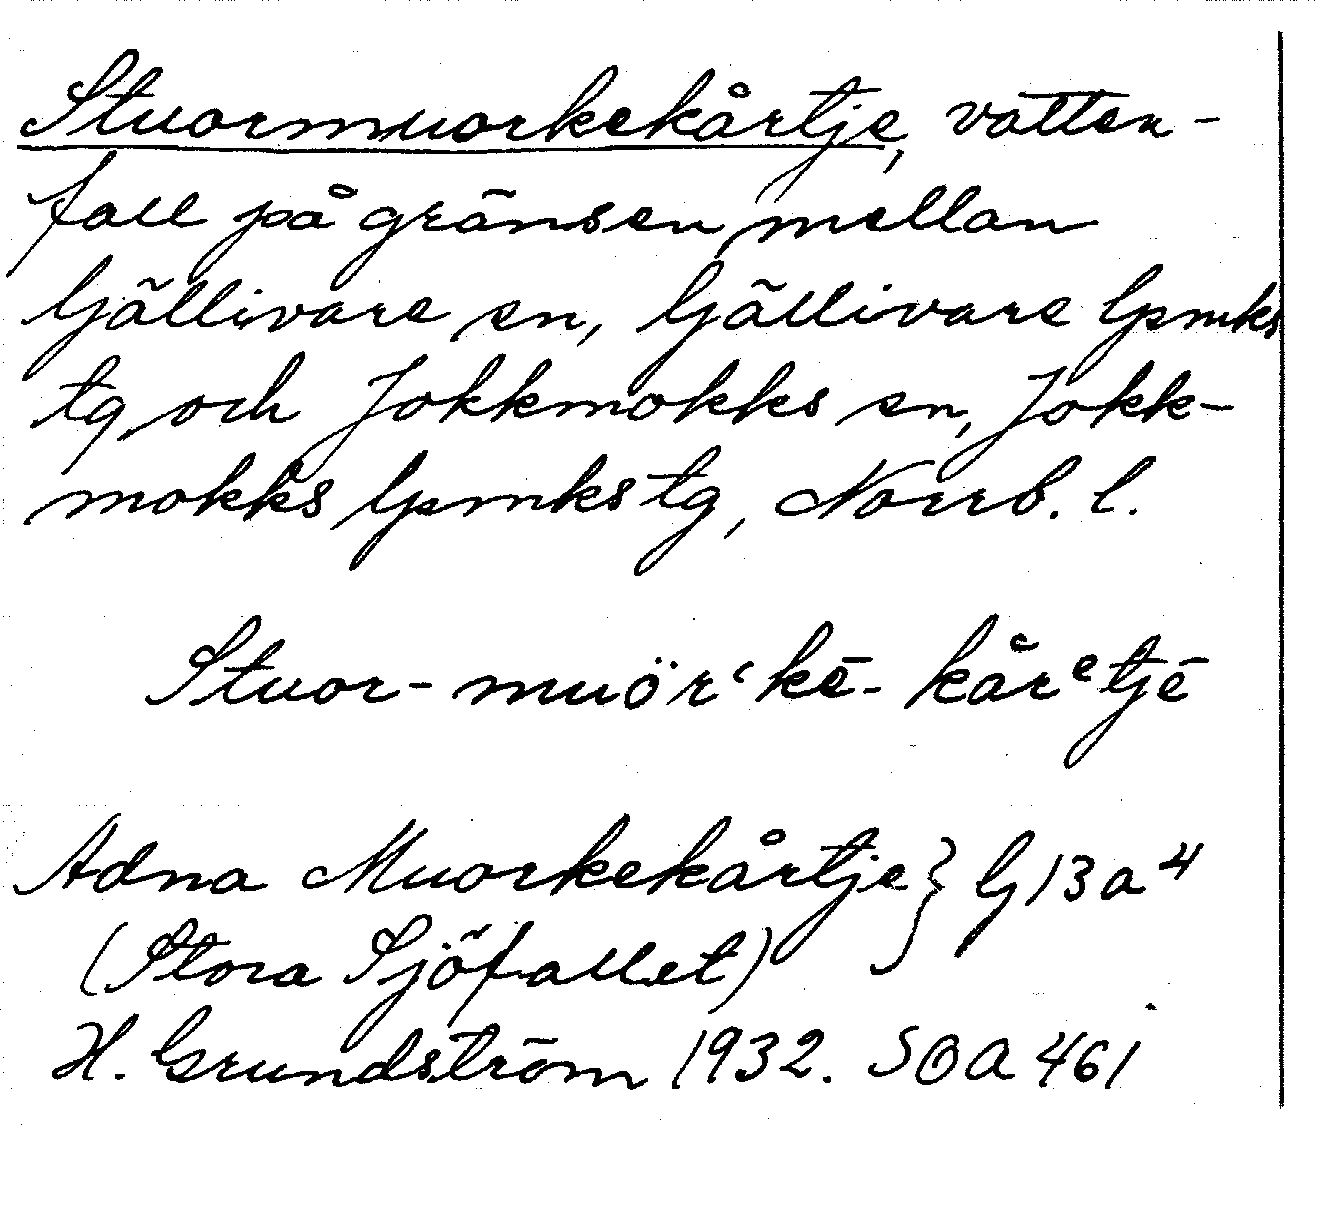 Stuormuorkekårtje, vatten-
fall på gränsen mellan
Gällivare sn, Gällivare lpmks
tg och Jokkmokks sn, Jokk-
mokks lpmks tg, Norrb. l.
Stuor-muörʻkē-kårᵉtjē
Adna Muorkekårtje } G13a4
(Stora Sjöfallet)
H. Grundström 1932. SOA 461